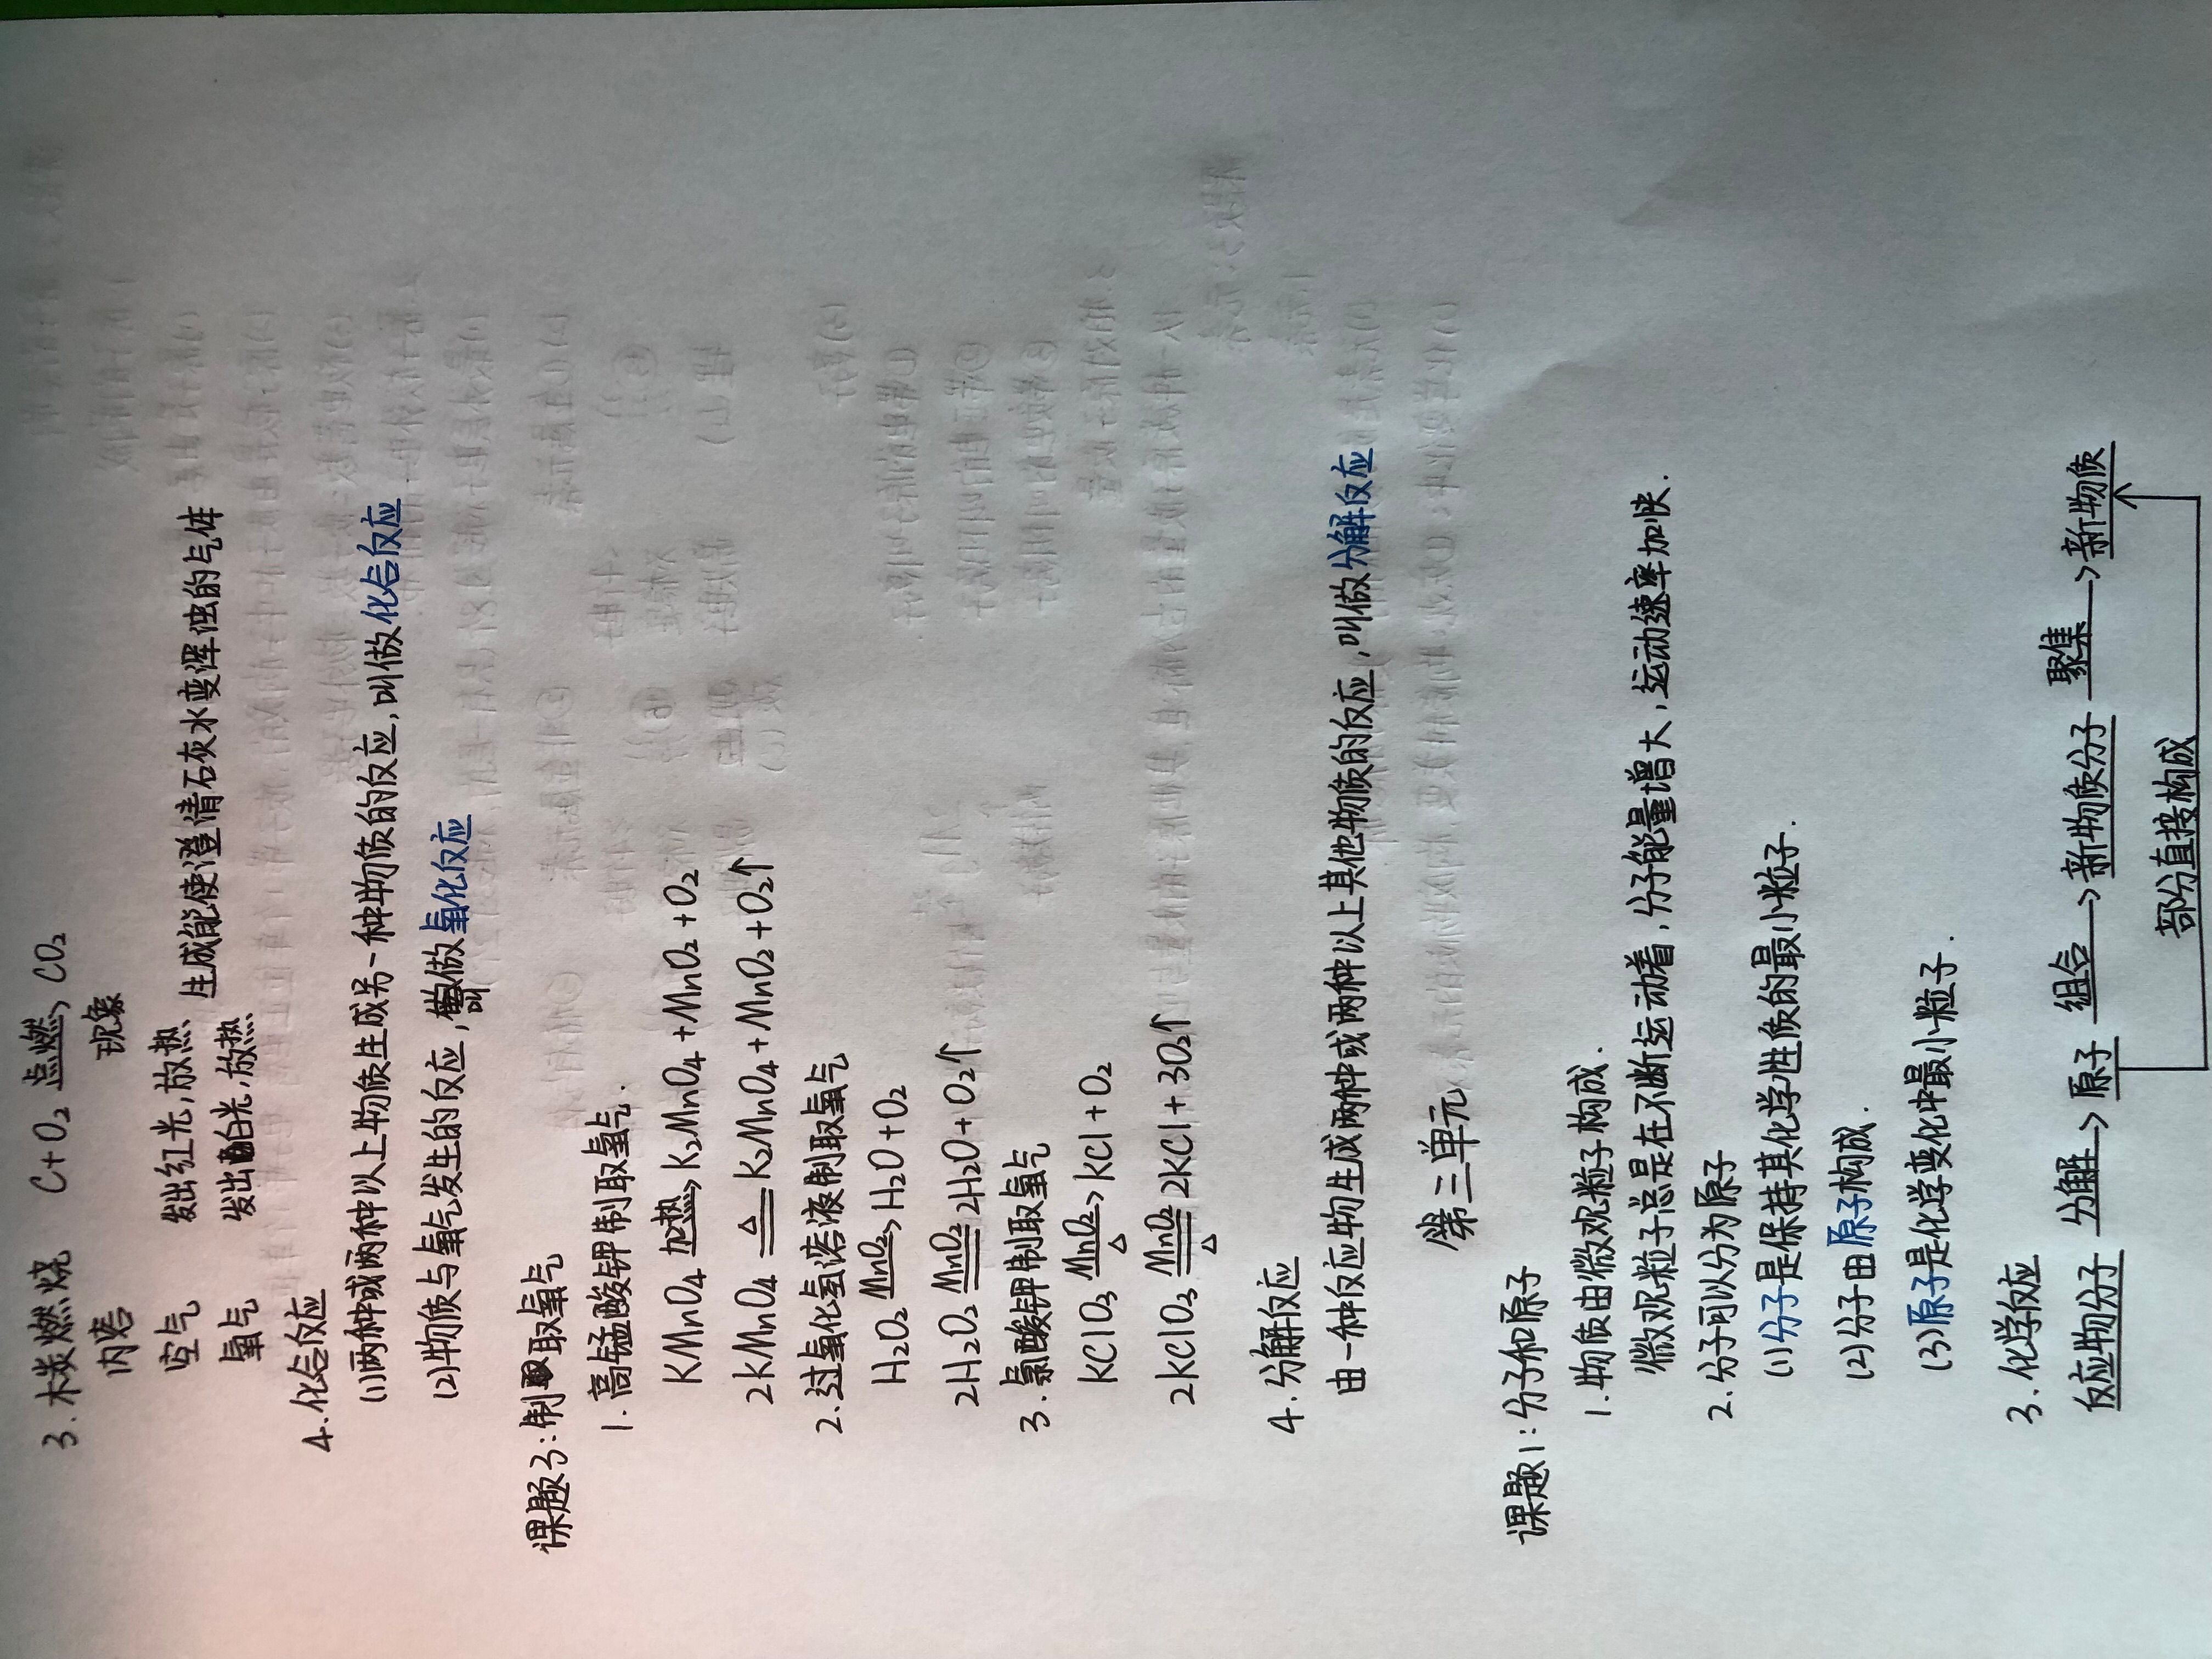 3. 木炭燃烧 C+O₂ 点燃→ CO₂
内容 现象
空气 发出红光,放热
生成能使澄清石灰水变浑浊的气体
氧气 发出白光,放热
4. 化合反应
(1)两种或两种以上物质生成另一种物质的反应,叫做化合反应
(2)物质与氧气发生的反应,叫做氧化反应
课题3:制取氧气
1. 高锰酸钾制取氧气.
KMnO₄ 加热→ K₂MnO₄+MnO₂+O₂
2KMnO₄ ≜ K₂MnO₄+MnO₂+O₂↑
2. 过氧化氢溶液制取氧气
H₂O₂ MnO₂→ H₂O+O₂
2H₂O₂ MnO₂═ 2H₂O+O₂↑
3. 氯酸钾制取氧气
KClO₃ MnO₂→△ KCl+O₂
2KClO₃ MnO₂═△ 2KCl+3O₂↑
4. 分解反应
由一种反应物生成两种或两种以上其他物质的反应,叫做分解反应
第三单元
课题1:分子和原子
1. 物质由微观粒子构成.
微观粒子总是在不断运动着,分子能量增大,运动速率加快.
2. 分子可以分为原子
(1)分子是保持其化学性质的最小粒子.
(2)分子由原子构成.
(3)原子是化学变化中最小粒子.
3. 化学反应
反应物分子 分解→ 原子 组合→ 新物质分子 聚集→ 新物质
部分直接构成